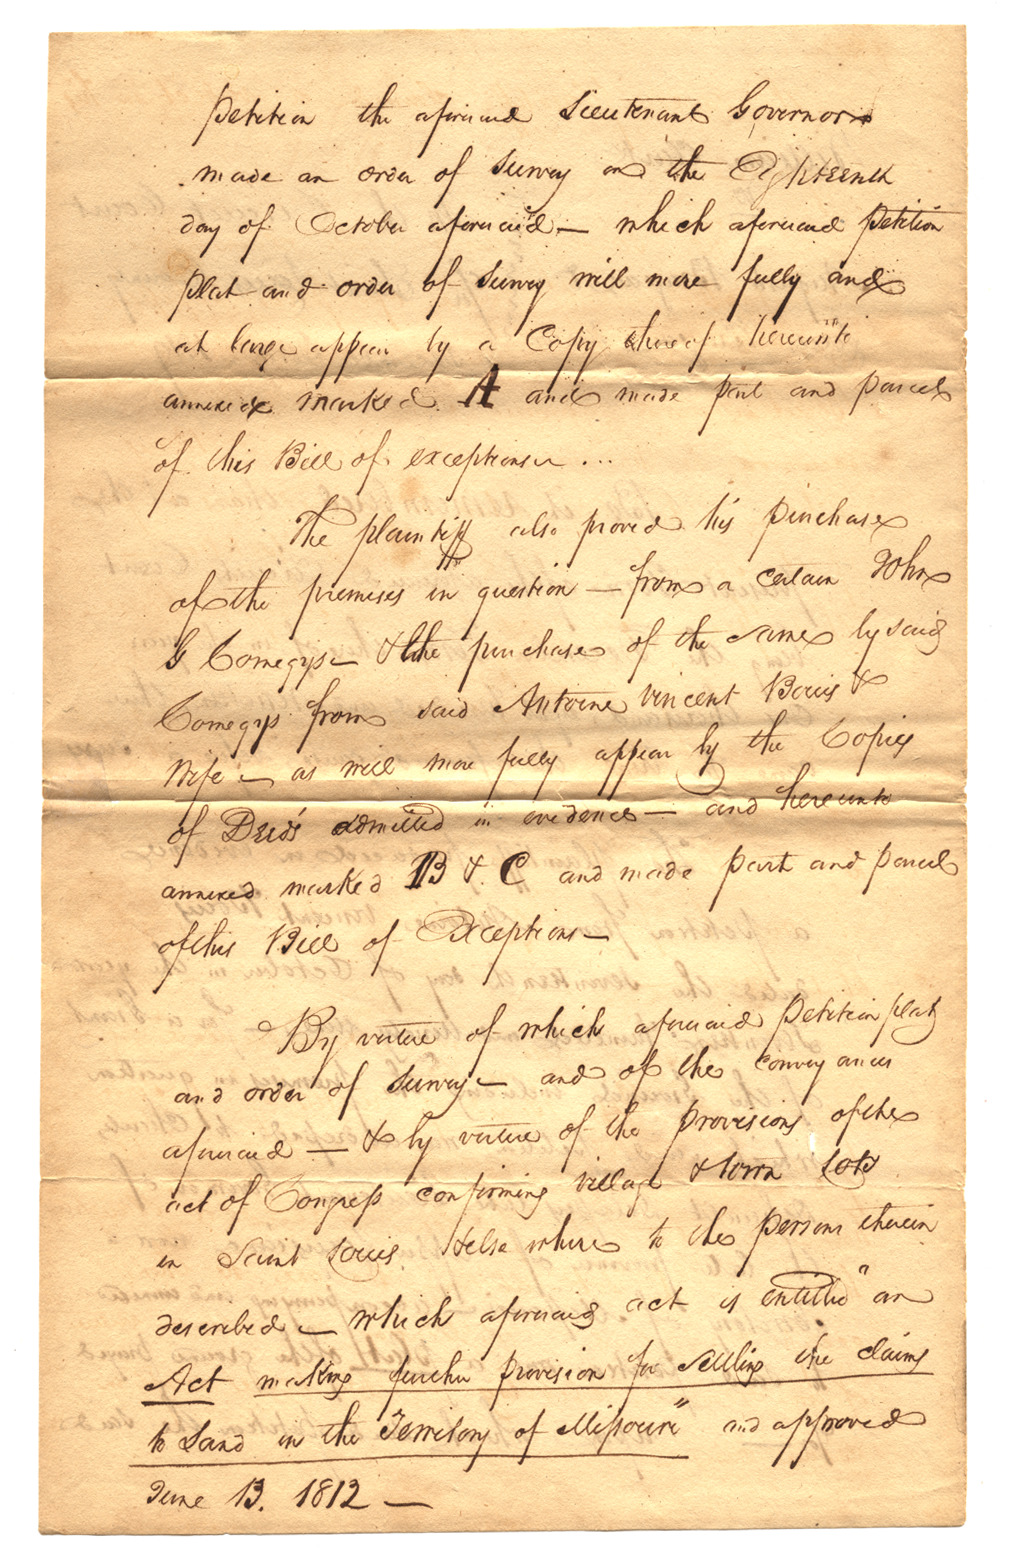 Petition the aforesaid Lieutenant Governor
made an order of Survey on the Eighteenth
day of October aforesaid — which aforesaid Petition
Plat and order of Survey will more fully and
at large appear by a Copy thereof hereunto
annexed marked A and made part and parcel
of this Bill of exceptions ...
The plaintiff also proved his Purchase
of the premises in question — from a certain John
G Comegys — & the purchase of the same by said
Comegys from said Antoine Vincent Bouis &
Wife — as will more fully appear by the Copies
of Deeds admitted in evidence — and hereunto
annexed marked B & C and made part and parcel
of this Bill of Exceptions —
By virtue of which aforesaid Petition plat
and order of Survey — and of the conveyances
aforesaid — & by virtue of the provisions of the
act of Congress confirming village & town Lots
in Saint Louis & elsewhere to the persons therein
described — which aforesaid act is entitled "an
Act making further provision for settling the claims
to Land in the Territory of Missouri" and approved
June 13. 1812 —